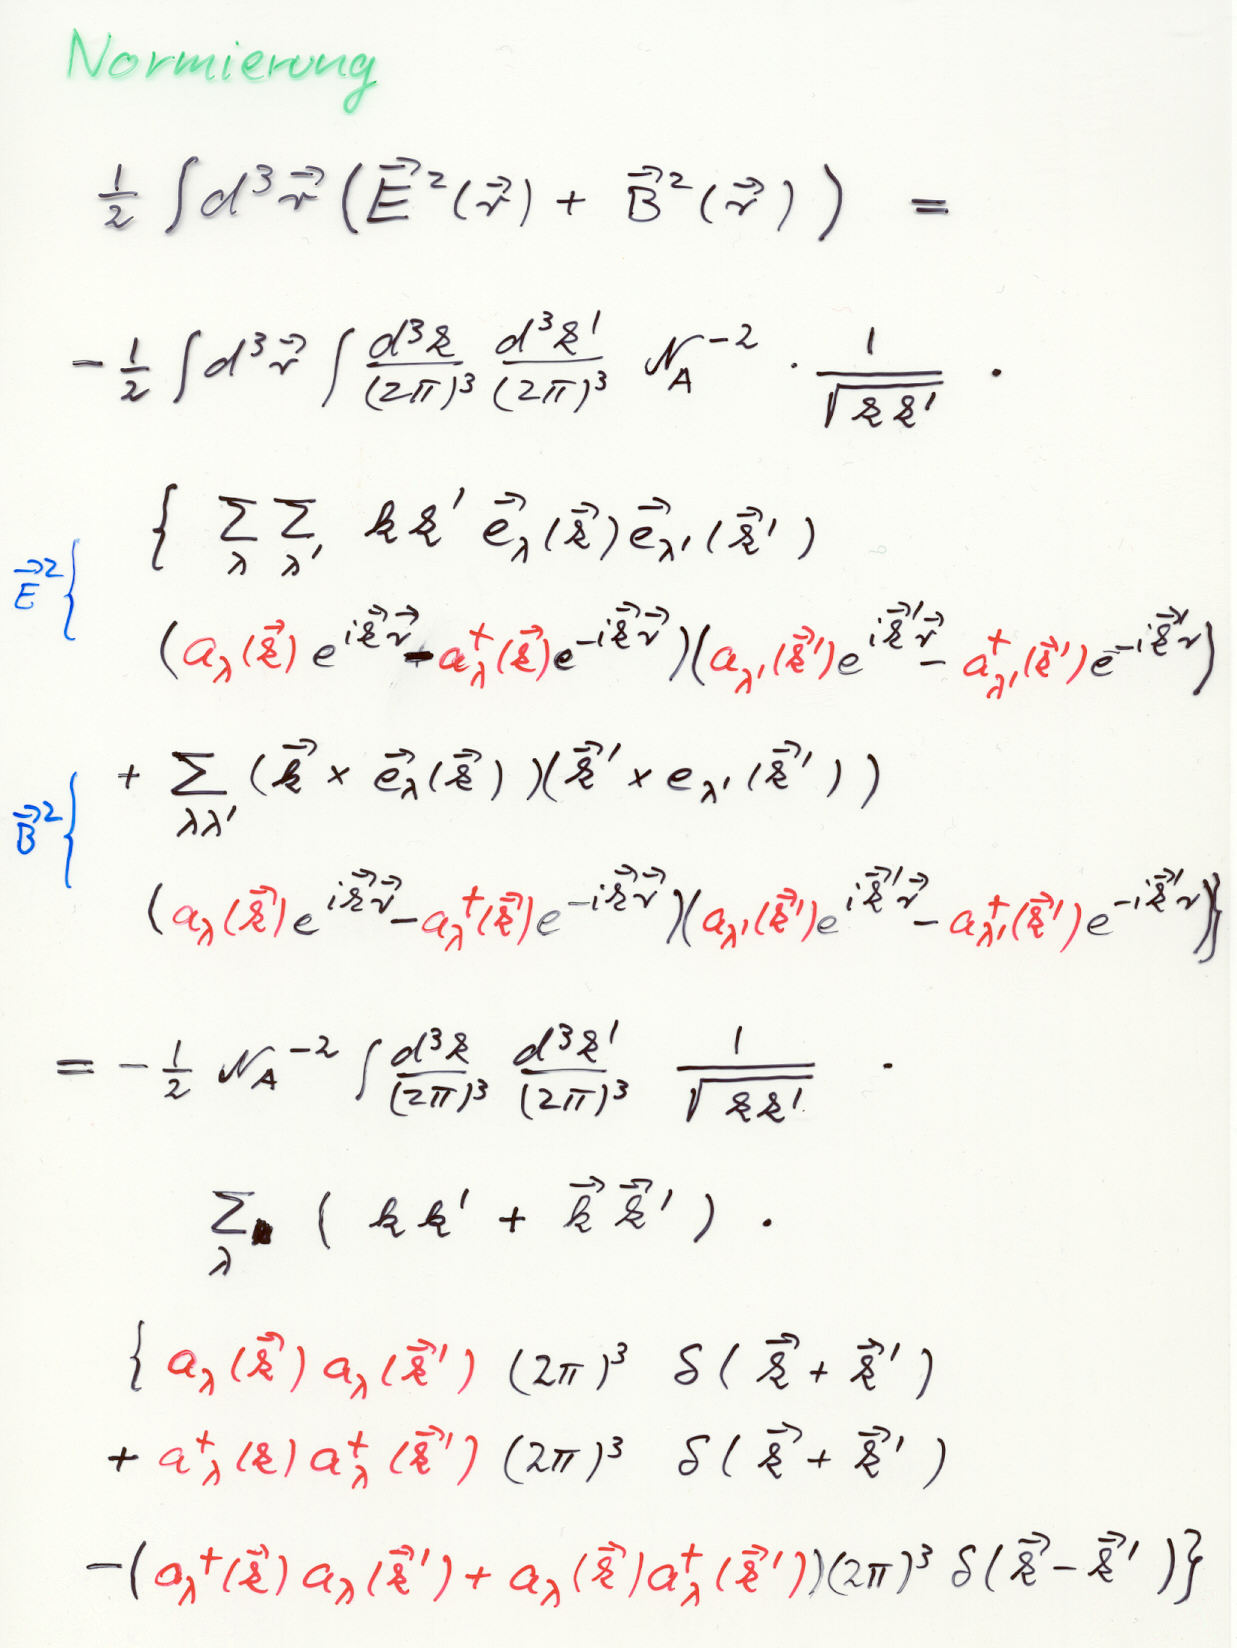 Normierung
½ ∫ d³r⃗ ( E⃗²(r⃗) + B⃗²(r⃗) ) =
- ½ ∫ d³r⃗ ∫ d³k/(2π)³ d³k'/(2π)³ 𝒩_A⁻² · 1/√(k k') ·
{ Σ_λ Σ_λ' k k' e⃗_λ(k⃗) e⃗_λ'(k⃗')
E⃗² {
(a_λ(k⃗) e^{ik⃗r⃗} - a_λ⁺(k⃗) e^{-ik⃗r⃗})(a_λ'(k⃗') e^{ik⃗'r⃗} - a_λ'⁺(k⃗') e^{-ik⃗'r⃗})
+ Σ_λλ' (k⃗ × e⃗_λ(k⃗))(k⃗' × e_λ'(k⃗'))
B⃗² {
(a_λ(k⃗) e^{ik⃗r⃗} - a_λ⁺(k⃗) e^{-ik⃗r⃗})(a_λ'(k⃗') e^{ik⃗'r⃗} - a_λ'⁺(k⃗') e^{-ik⃗'r⃗})}
= - ½ 𝒩_A⁻² ∫ d³k/(2π)³ d³k'/(2π)³ 1/√(k k') ·
Σ_λ ( k k' + k⃗ k⃗' ) ·
{ a_λ(k⃗) a_λ(k⃗') (2π)³ δ(k⃗ + k⃗')
+ a⁺_λ(k) a⁺_λ(k⃗') (2π)³ δ(k⃗ + k⃗')
- (a_λ⁺(k⃗) a_λ(k⃗') + a_λ(k⃗) a⁺_λ(k⃗'))(2π)³ δ(k⃗ - k⃗')}